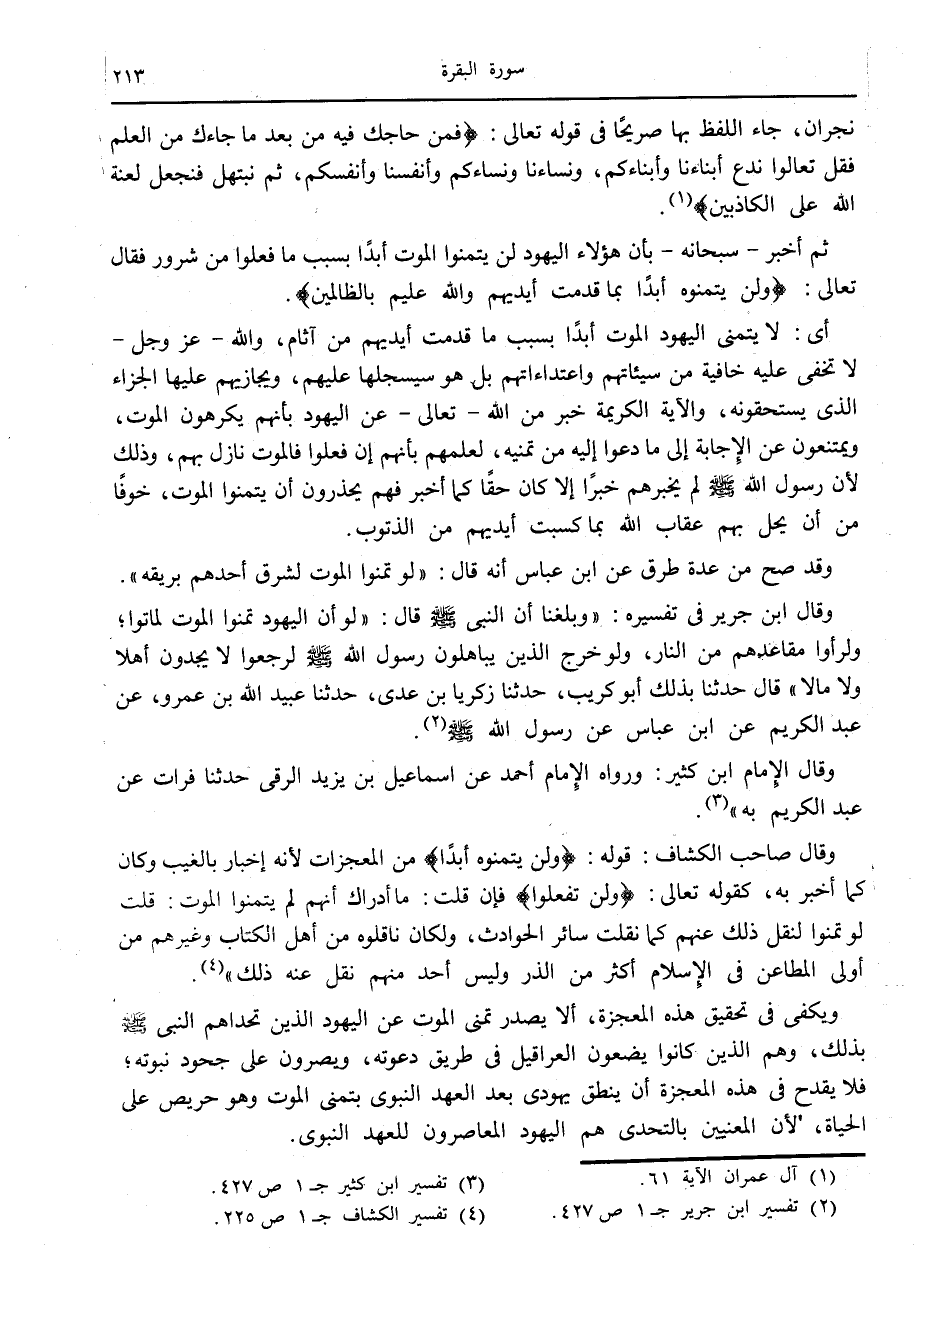 سورة البقرة
٢١٣
نجران، جاء اللفظ بها صريحًا فى قوله تعالى : ﴿فمن حاجك فيه من بعد ما جاءك من العلم
فقل تعالوا ندع أبناءنا وأبناءكم، ونساءنا ونساءكم وأنفسنا وأنفسكم، ثم نبتهل فنجعل لعنة
الله على الكاذبين﴾(١).
ثم أخبر – سبحانه – بأن هؤلاء اليهود لن يتمنوا الموت أبدًا بسبب ما فعلوا من شرور فقال
تعالى : ﴿ولن يتمنوه أبدًا بما قدمت أيديهم والله عليم بالظالمين﴾.
أى : لا يتمنى اليهود الموت أبدًا بسبب ما قدمت أيديهم من آثام، والله – عز وجل –
لا تخفى عليه خافية من سيئاتهم واعتداءاتهم بل هو سيسجلها عليهم، ويجازيهم عليها الجزاء
الذى يستحقونه، والآية الكريمة خبر من الله – تعالى – عن اليهود بأنهم يكرهون الموت،
ويمتنعون عن الإجابة إلى ما دعوا إليه من تمنيه، لعلمهم بأنهم إن فعلوا فالموت نازل بهم، وذلك
لأن رسول الله ﷺ لم يخبرهم خبرًا إلا كان حقًا كما أخبر فهم يحذرون أن يتمنوا الموت، خوفًا
من أن يحل بهم عقاب الله بما كسبت أيديهم من الذنوب.
وقد صح من عدة طرق عن ابن عباس أنه قال : «لو تمنوا الموت لشرق أحدهم بريقه».
وقال ابن جرير فى تفسيره : «وبلغنا أن النبى ﷺ قال : «لو أن اليهود تمنوا الموت لماتوا؛
ولرأوا مقاعدهم من النار، ولو خرج الذين يباهلون رسول الله ﷺ لرجعوا لا يجدون أهلا
ولا مالا» قال حدثنا بذلك أبو كريب، حدثنا زكريا بن عدى، حدثنا عبيد الله بن عمرو، عن
عبد الكريم عن ابن عباس عن رسول الله ﷺ(٢).
وقال الإمام ابن كثير : ورواه الإمام أحمد عن اسماعيل بن يزيد الرقى حدثنا فرات عن
عبد الكريم به»(٣).
وقال صاحب الكشاف : قوله : ﴿ولن يتمنوه أبدًا﴾ من المعجزات لأنه إخبار بالغيب وكان
كما أخبر به، كقوله تعالى : ﴿ولن تفعلوا﴾ فإن قلت : ما أدراك أنهم لم يتمنوا الموت : قلت
لو تمنوا لنقل ذلك عنهم كما نقلت سائر الحوادث، ولكان ناقلوه من أهل الكتاب وغيرهم من
أولى المطاعن فى الإسلام أكثر من الذر وليس أحد منهم نقل عنه ذلك»(٤).
ويكفى فى تحقيق هذه المعجزة، ألا يصدر تمنى الموت عن اليهود الذين تحداهم النبى ﷺ
بذلك، وهم الذين كانوا يضعون العراقيل فى طريق دعوته، ويصرون على جحود نبوته؛
فلا يقدح فى هذه المعجزة أن ينطق يهودى بعد العهد النبوى بتمنى الموت وهو حريص على
الحياة، لأن المعنيين بالتحدى هم اليهود المعاصرون للعهد النبوى.
(١) آل عمران الآية ٦١.
(٢) تفسير ابن جرير جـ ١ ص ٤٢٧.
(٣) تفسير ابن كثير جـ ١ ص ٤٢٧.
(٤) تفسير الكشاف جـ ١ ص ٢٢٥.